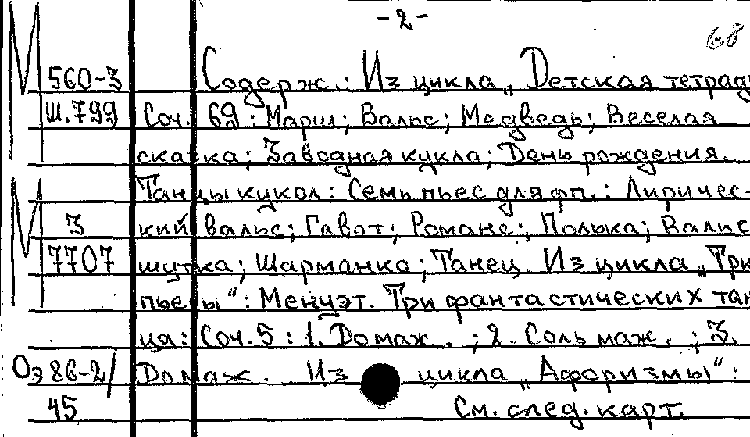 -2-
68
560-3 Содерж.: Из цикла „Детская тетрадь
Ш.799 Соч. 69: Марш; Вальс; Медведь; Веселая
сказка; Заводная кукла; День рождения.
Танцы кукол: Семь пьес для фп.: Лиричес-
3 кий вальс; Гавот; Романс; Полька; Вальс
7707 шутка; Шарманка; Танец. Из цикла „Три
пьесы": Менуэт. Три фантастических тан
ца: Соч. 5: 1. До маж.; 2. Соль маж.; 3.
Оэ 86-2/ До маж. Из цикла „Афоризмы":
45 См. след. карт.